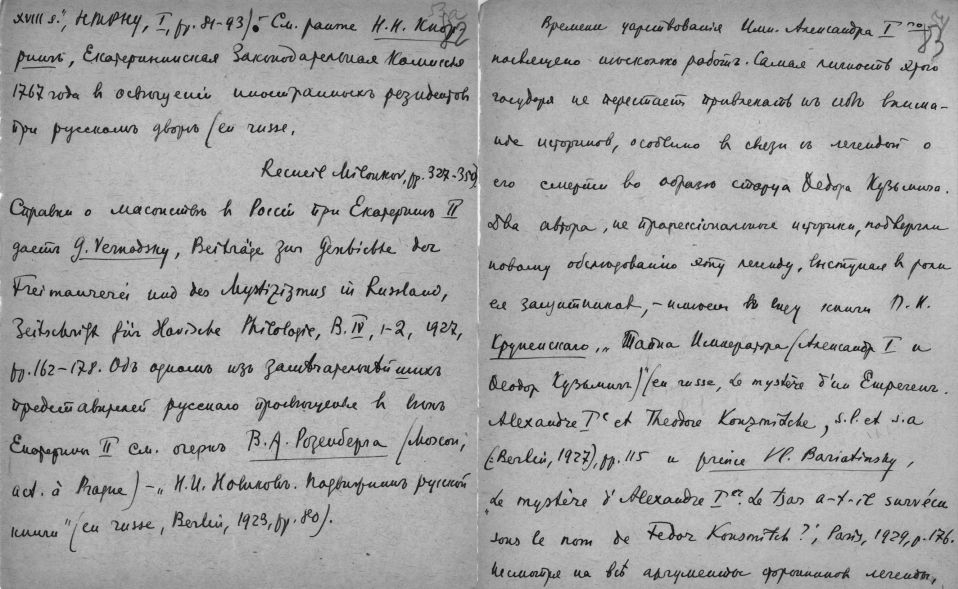 XVIII в.", НТРНУ, I, pp. 81-93). См. ранѣе Н.Н. Кнор-
рингъ, Екатерининская Законодательная Комиссія
1767 года въ освѣщеніи иностранныхъ резидентовъ
при русскомъ дворѣ (en russe,
Recueil Milonkov, pp. 327-350).
Справки о масонствѣ въ Россіи при Екатеринѣ II
даетъ G. Vernadsky, Beiträge zur Geschichte der
Freimaurerei und des Mystizismus in Russland,
Zeitschrift für slavische Philologie, B. IV, 1-2, 1927,
pp. 162-178. Объ одномъ изъ замѣчательнѣйшихъ
представителей русскаго просвѣщенія въ вѣкъ
Екатерины II см. очеркъ В.А. Розенберга (Moscou,
act. à Prague) – „Н.И. Новиковъ. Подвижникъ русской
книги" (en russe, Berlin, 1923, pp. 80).
83
Времени царствованія Имп. Александра I го
посвящено нѣсколько работъ. Самая личность этого
государя не перестаетъ привлекать къ себѣ внима-
ніе историковъ, особенно въ связи съ легендой о
его смерти во образѣ старца Ѳедора Кузьмича.
Два автора, не профессіональные историки, подвергли
новому обслѣдованію эту легенду, выступая въ роли
ея защитниковъ, – имѣемъ въ виду книги П.Н.
Крупенскаго, „Тайна Императора (Александръ I и
Ѳеодоръ Кузьмичъ)" (en russe, Le mystère d'un Empereur.
Alexandre I er et Théodore Kouzmitche, s.l. et s.a
(:Berlin, 1927), pp. 115 и prince Vl. Bariatinsky,
„Le mystère d'Alexandre I er. Le Tsar a-t-il survécu
sous le nom de Fedor Kousmitch?", Paris, 1929, p. 176.
Несмотря на всѣ аргументы сторонниковъ легенды,